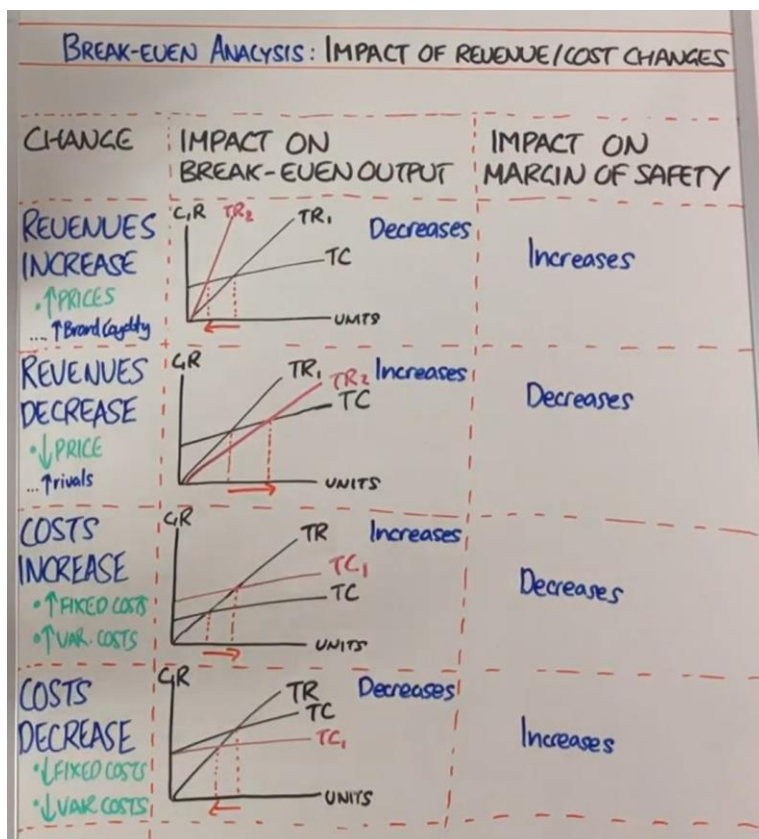 BREAK-EVEN ANALYSIS: IMPACT OF REVENUE/COST CHANGES
CHANGE
IMPACT ON
BREAK-EVEN OUTPUT
IMPACT ON
MARGIN OF SAFETY
REVENUES
INCREASE
• ↑PRICES
... ↑Brand loyalty
C,R
TR₂
TR₁
TC
UNITS
Decreases
Increases
REVENUES
DECREASE
• ↓PRICE
... ↑rivals
C,R
TR₁
TR₂
TC
UNITS
Increases
Decreases
COSTS
INCREASE
• ↑FIXED COSTS
• ↑VAR. COSTS
C,R
TR
TC₁
TC
UNITS
Increases
Decreases
COSTS
DECREASE
• ↓FIXED COSTS
• ↓VAR COSTS
C,R
TR
TC
TC₁
UNITS
Decreases
Increases